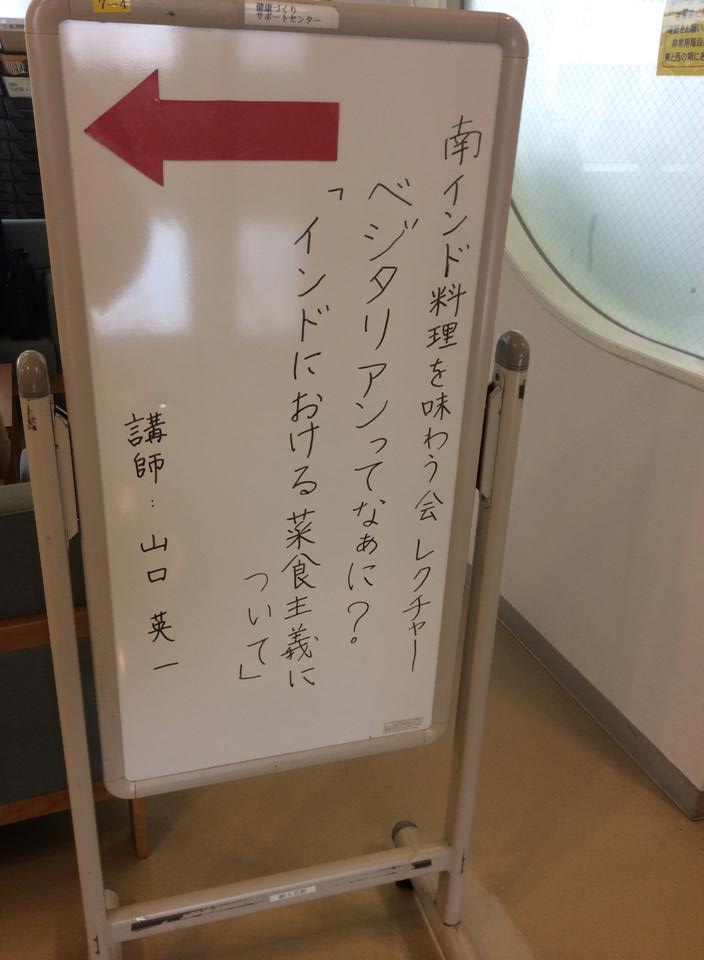 7-4
健康づくり
サポートセンター
南インド料理を味わう会 レクチャー
ベジタリアンってなぁに?。
「インドにおける菜食主義に
ついて」
講師: 山口 英一
非常用階段
東と西の隅にあ